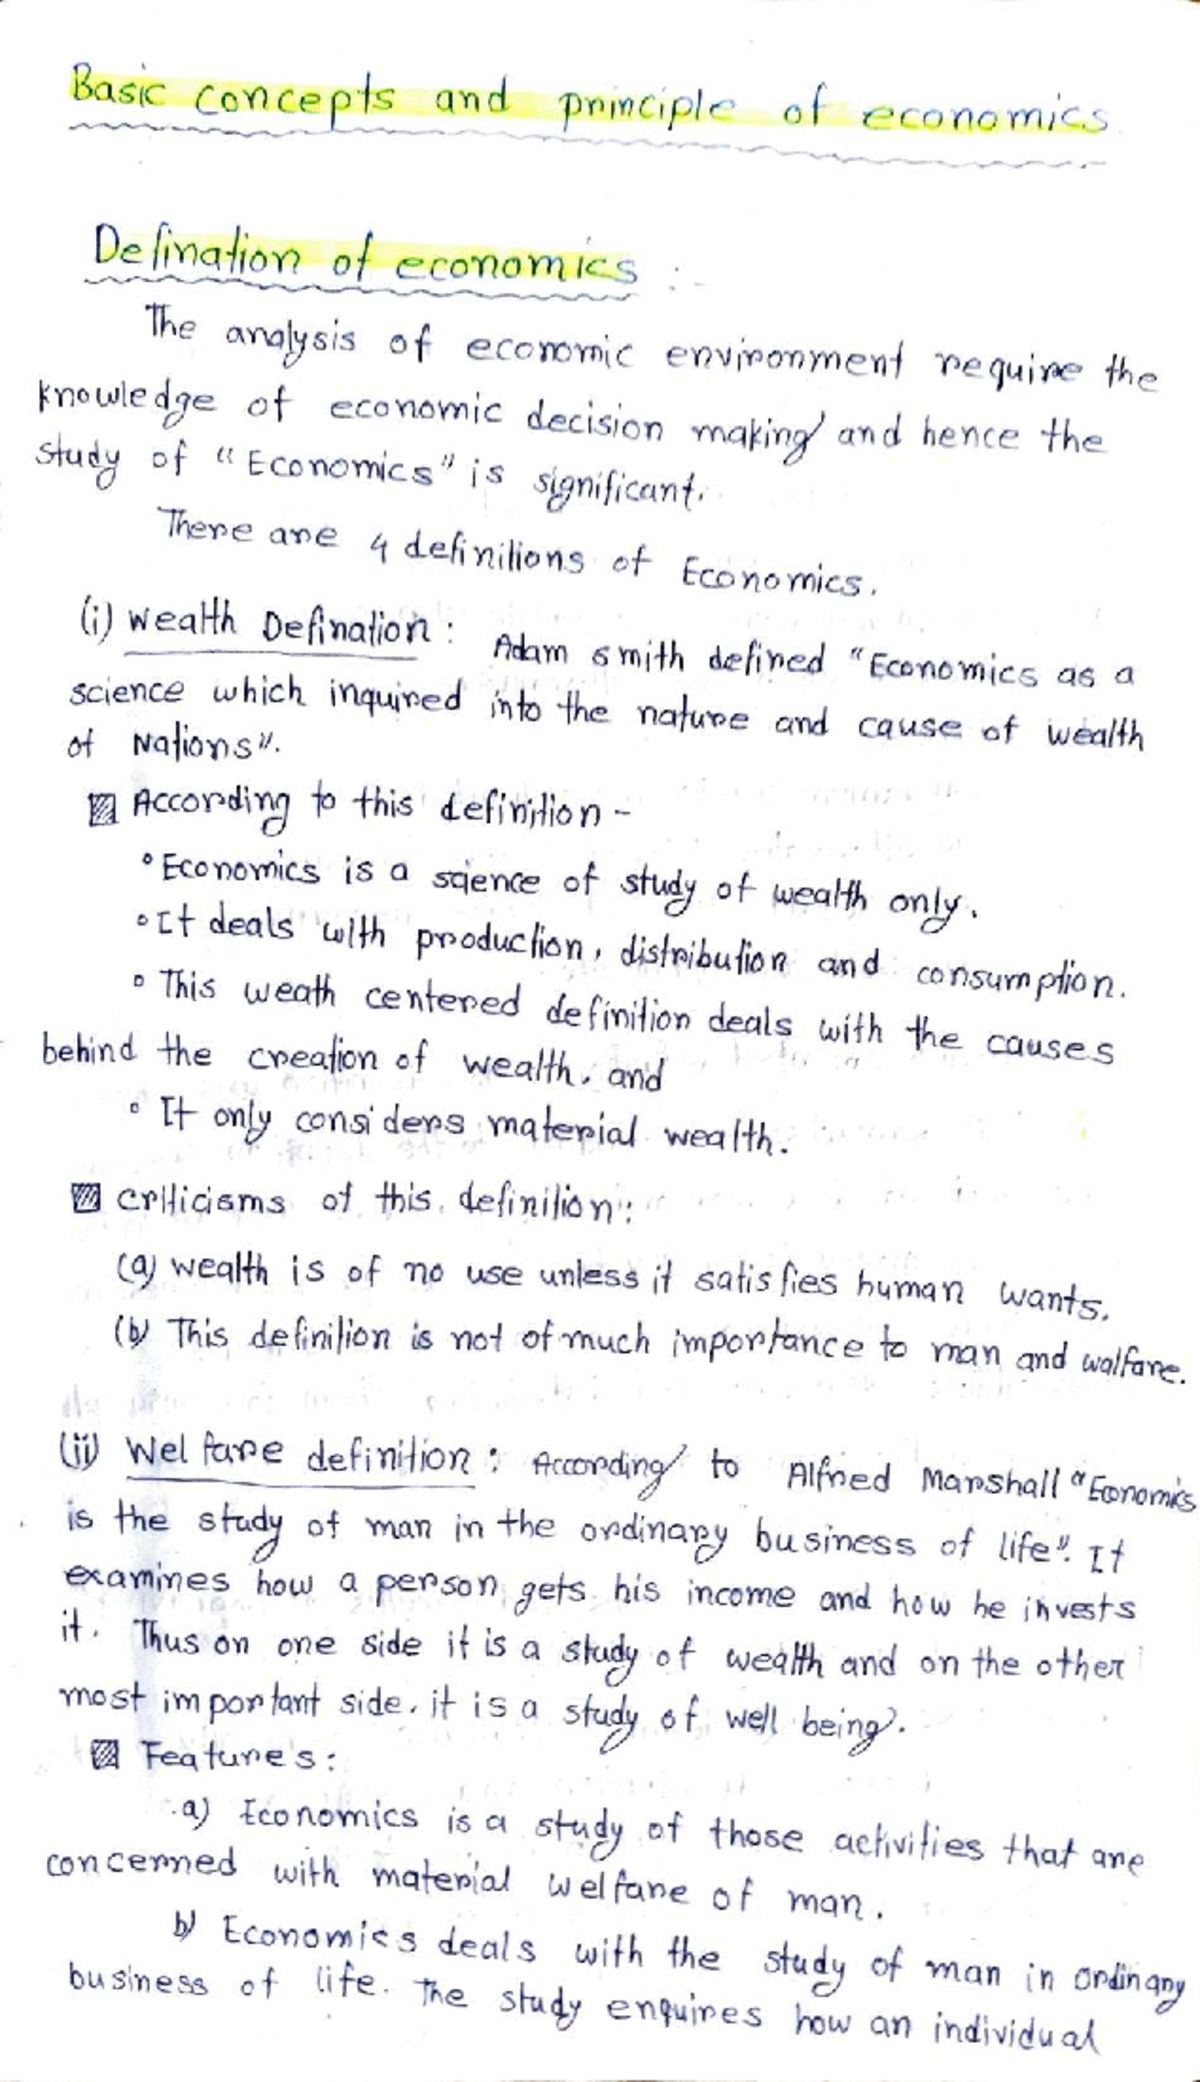 Basic concepts and principle of economics
Defination of economics :-
The analysis of economic environment require the
knowledge of economic decision making and hence the
study of "Economics" is significant.
There are 4 definitions of Economics.
(i) Wealth Defination : Adam smith defined "Economics as a
science which inquired into the nature and cause of wealth
of Nations".
According to this definition -
° Economics is a science of study of wealth only.
° It deals with production, distribution and consumption.
° This weath centered definition deals with the causes
behind the creation of wealth. and
° It only considers material wealth.
criticisms of this definition:
(a) wealth is of no use unless it satisfies human wants.
(b) This definition is not of much importance to man and walfare.
(ii) Welfare definition : According to Alfred Marshall "Economics
is the study of man in the ordinary business of life". It
examines how a person gets his income and how he invests
it. Thus on one side it is a study of wealth and on the other
most important side, it is a study of well being.
Features:
a) Economics is a study of those activities that are
concerned with material welfare of man.
b) Economics deals with the study of man in ordinary
business of life. The study enquires how an individual